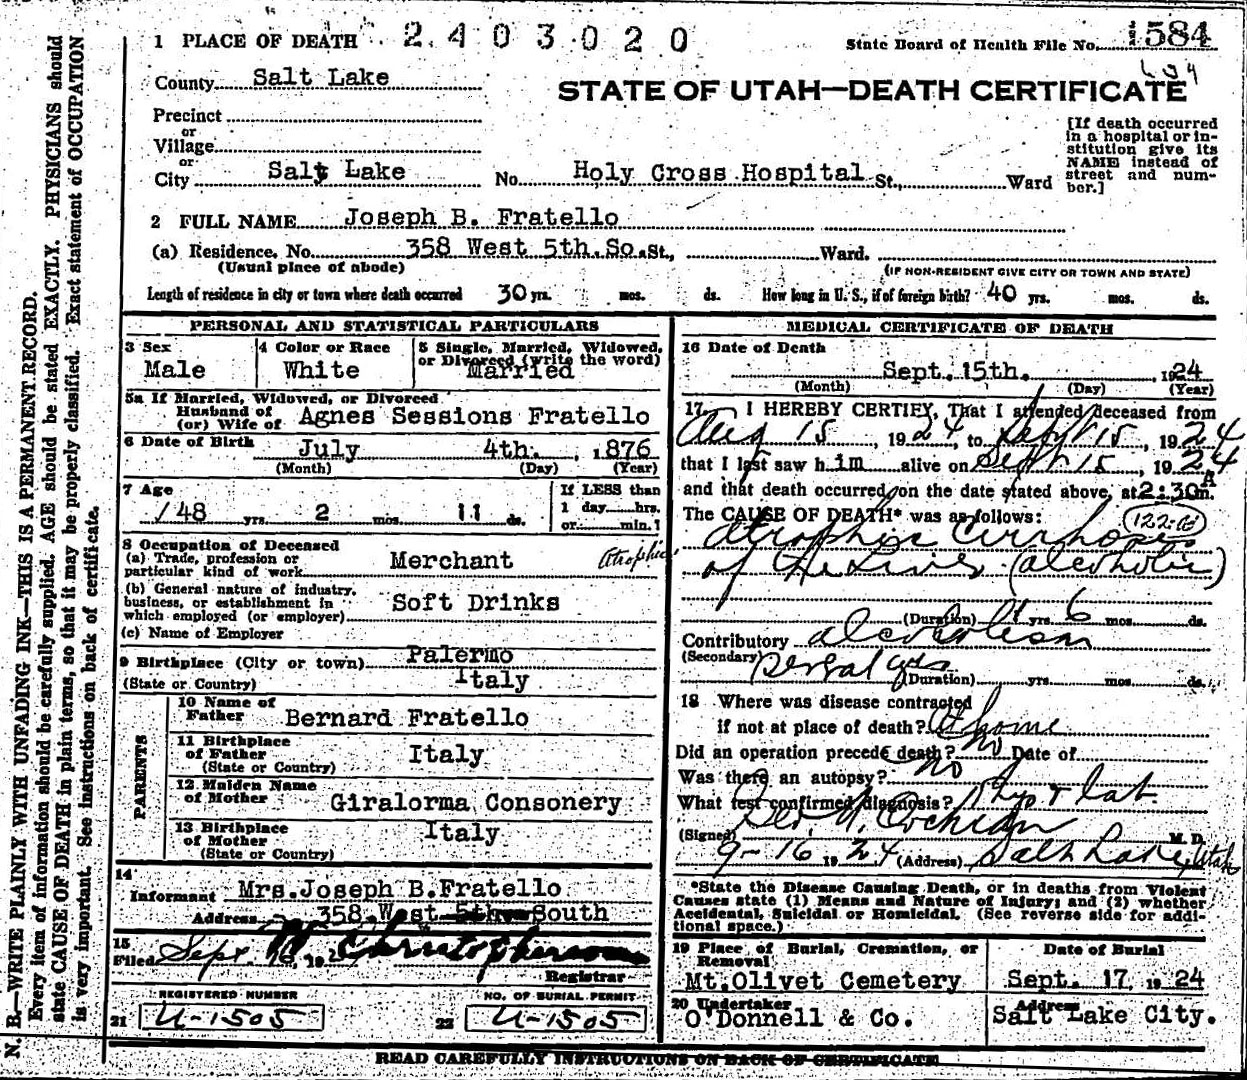 1 PLACE OF DEATH 2403020 State Board of Health File No. 1584
County Salt Lake
STATE OF UTAH—DEATH CERTIFICATE
Precinct
or
Village
or
City Salt Lake No. Holy Cross Hospital St., Ward
[If death occurred
in a hospital or in-
stitution give its
NAME instead of
street and num-
ber.]
2 FULL NAME Joseph B. Fratello
(a) Residence, No. 358 West 5th.So. St., Ward.
(Usual place of abode) (IF NON-RESIDENT GIVE CITY OR TOWN AND STATE)
Length of residence in city or town where death occurred 30 yrs. mos. ds. How long in U. S., if of foreign birth? 40 yrs. mos. ds.
PERSONAL AND STATISTICAL PARTICULARS
3 Sex
Male
4 Color or Race
White
5 Single, Married, Widowed,
or Divorced (write the word)
Married
5a If Married, Widowed, or Divorced
Husband of
(or) Wife of Agnes Sessions Fratello
6 Date of Birth July 4th. , 1876
(Month) (Day) (Year)
7 Age
48 yrs. 2 mos. 11 ds.
If LESS than
1 day hrs.
or min.?
8 Occupation of Deceased
(a) Trade, profession or
particular kind of work Merchant
atrophic
(b) General nature of industry,
business, or establishment in
which employed (or employer) Soft Drinks
(c) Name of Employer
9 Birthplace (City or town) Palermo
(State or Country) Italy
PARENTS
10 Name of
Father Bernard Fratello
11 Birthplace
of Father Italy
(State or Country)
12 Maiden Name
of Mother Giralorma Consonery
13 Birthplace
of Mother Italy
(State or Country)
14
Informant Mrs.Joseph B.Fratello
Address 358 West 5th South
15
Filed Sept. , 192 Christopherson
Registrar
REGISTERED NUMBER
21 U-1505
NO. OF BURIAL PERMIT
22 U-1505
MEDICAL CERTIFICATE OF DEATH
16 Date of Death
Sept. 15th. , 1924
(Month) (Day) (Year)
17 I HEREBY CERTIFY, That I attended deceased from
Aug 15 , 1924, to Sept 15 , 1924
that I last saw him alive on Sept 15 , 1924
and that death occurred on the date stated above, at 2:30 A m.
The CAUSE OF DEATH* was as follows:
Atrophic Cirrhosis
of the Liver (alcoholic)
(Duration) yrs. 6 mos. ds.
Contributory alcoholism
(Secondary) several yrs
(Duration) yrs. mos. ds.
18 Where was disease contracted
if not at place of death? At home
Did an operation precede death? no Date of
Was there an autopsy? no
What test confirmed diagnosis? Phy & lab.
(Signed) Geo. W. Cochran M. D.
9-16, 1924 (Address) Salt Lake, Utah
*State the Disease Causing Death, or in deaths from Violent
Causes state (1) Means and Nature of Injury; and (2) whether
Accidental, Suicidal or Homicidal. (See reverse side for addi-
tional space.)
19 Place of Burial, Cremation, or
Removal
Mt.Olivet Cemetery
Date of Burial
Sept. 17, 1924
20 Undertaker
O'Donnell & Co.
Address
Salt Lake City.
READ CAREFULLY INSTRUCTIONS ON BACK OF CERTIFICATE
N. B.—WRITE PLAINLY WITH UNFADING INK—THIS IS A PERMANENT RECORD.
Every item of information should be carefully supplied. AGE should be stated EXACTLY. PHYSICIANS should
state CAUSE OF DEATH in plain terms, so that it may be properly classified. Exact statement of OCCUPATION
is very important. See instructions on back of certificate.